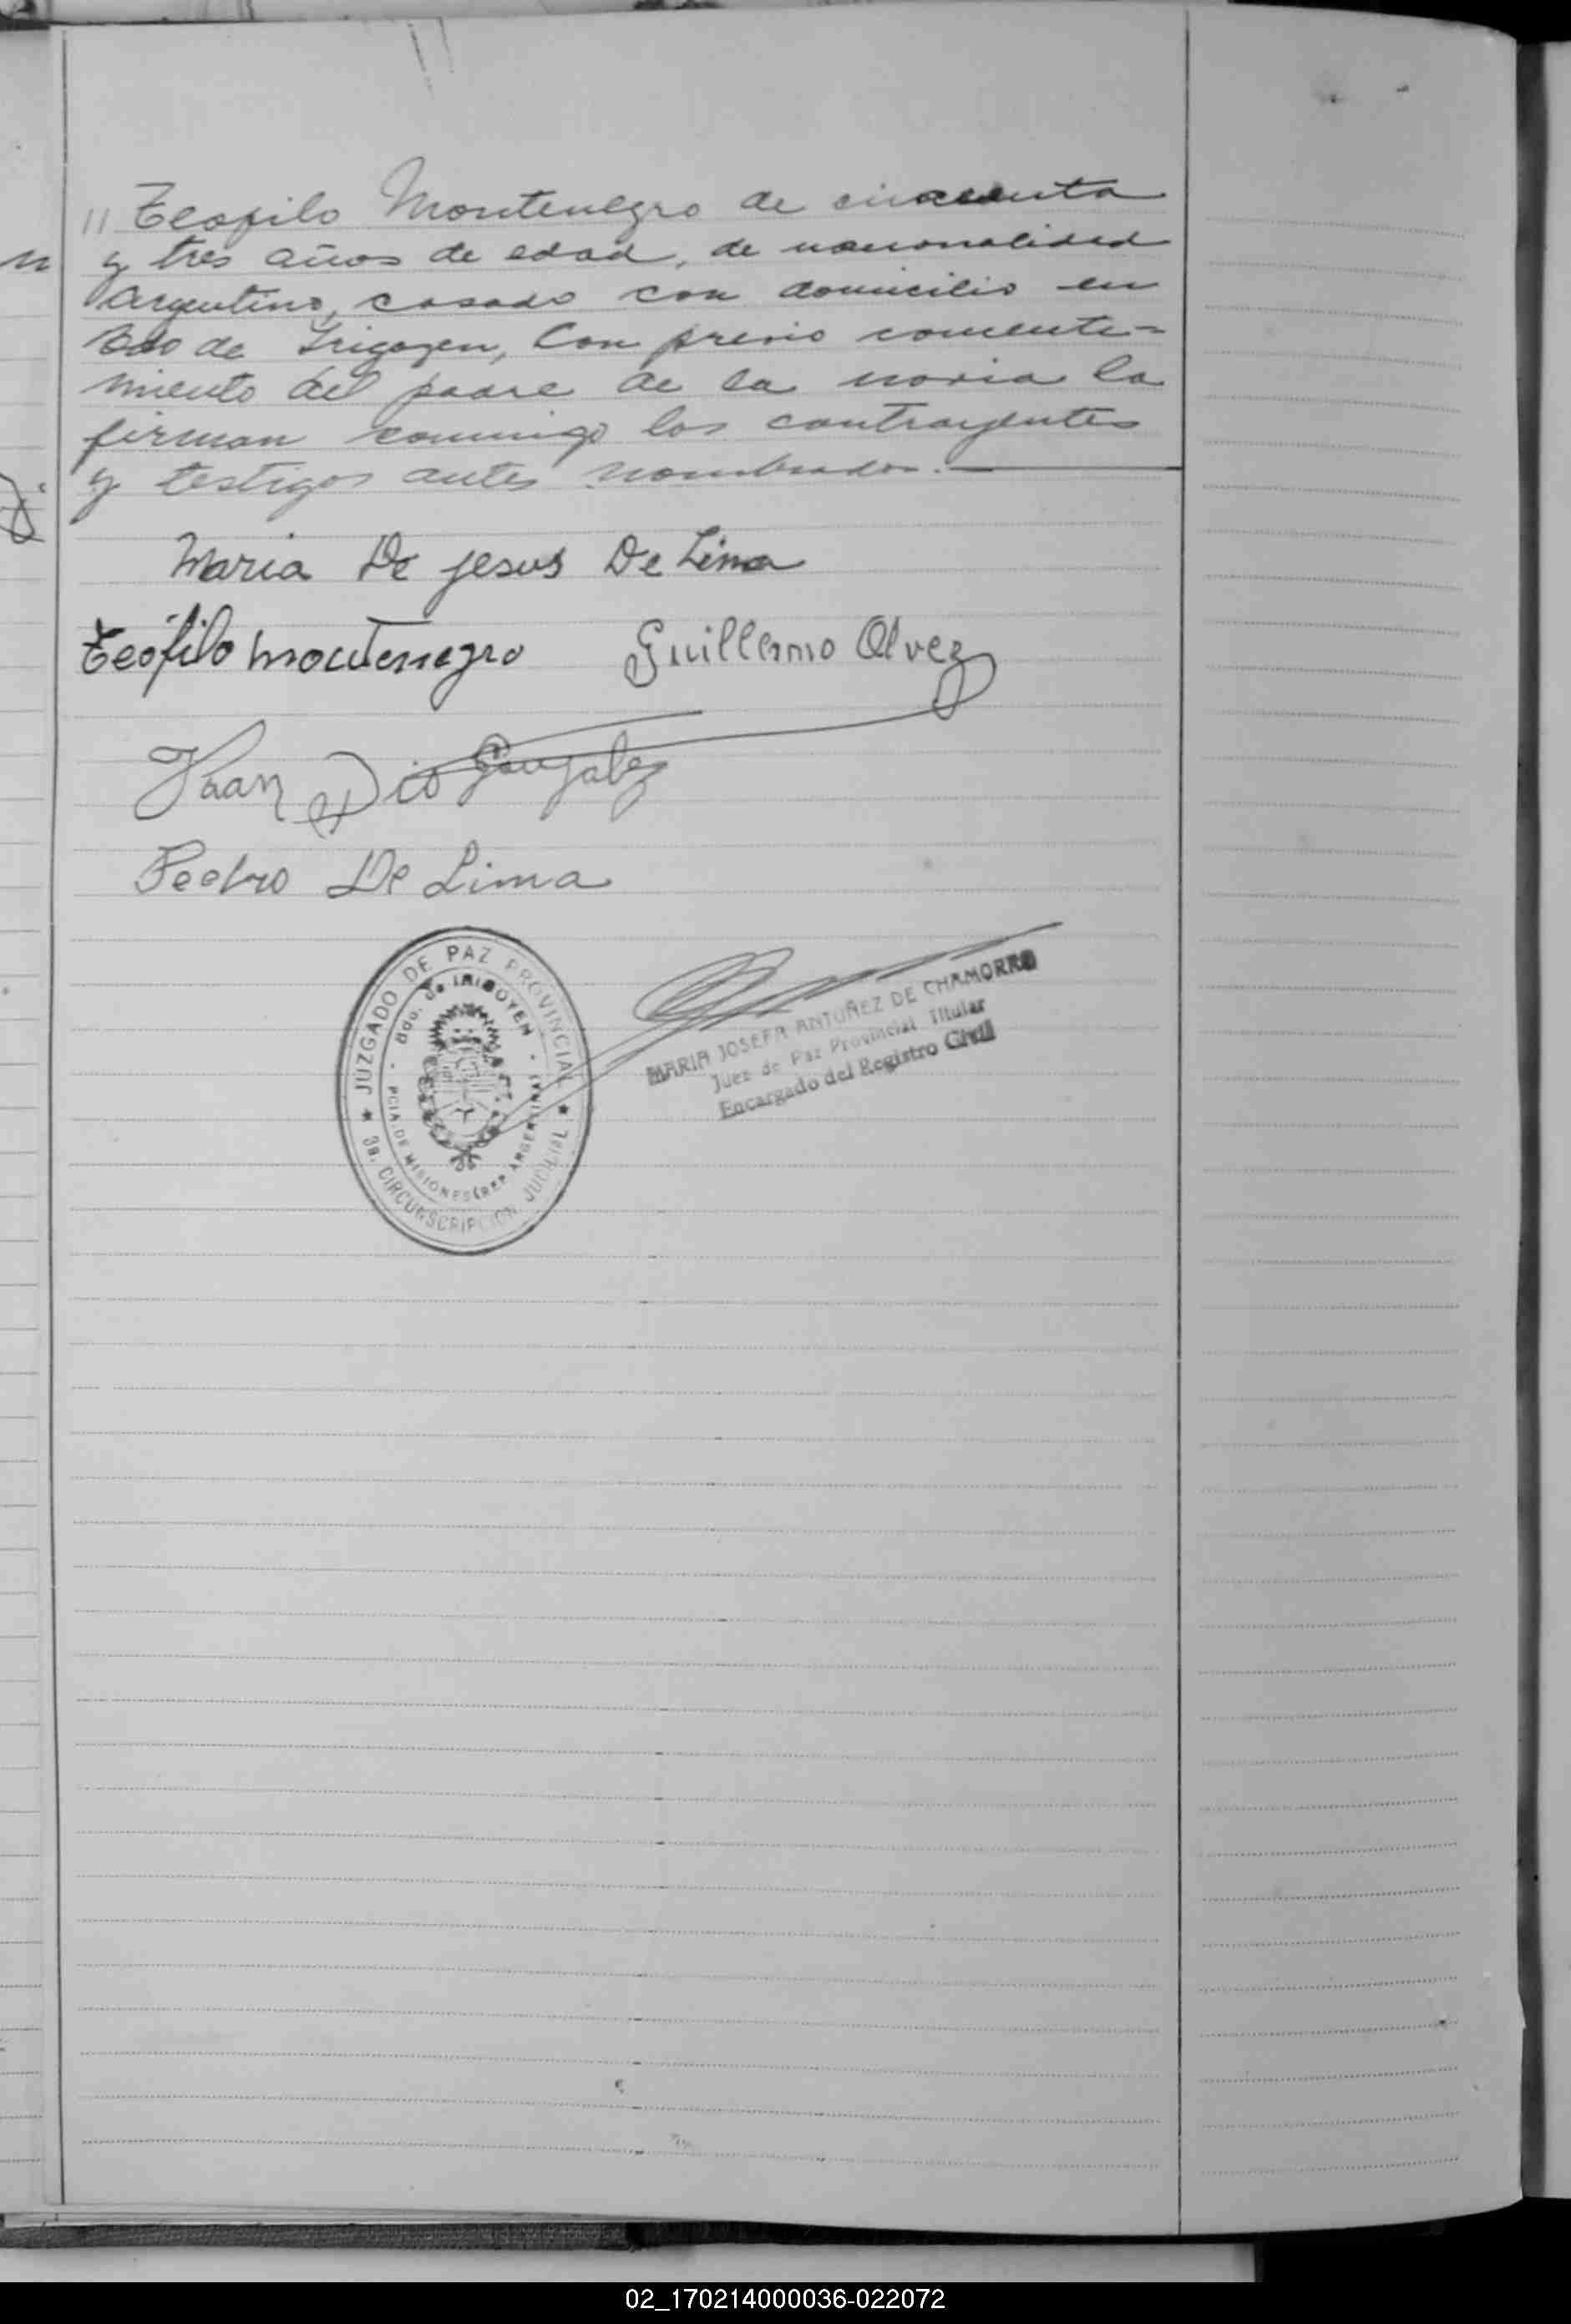 // Teofilo Montenegro de cincuenta
y tres años de edad, de nacionalidad
Argentino, casado con domicilio en
Bdo de Irigoyen, Con previo consenti-
miento del padre de la novia la
firman conmigo los contrayentes
y testigos antes nombrados.
Maria De jesus De Lima
Teófilo montenegro Guillermo Alvez
Gonzalez
Pedro De Lima
JUZGADO DE PAZ PROVINCIAL
Bdo. de IRIGOYEN
PCIA. DE MISIONES (REP. ARGENTINA)
3a. CIRCUNSCRIPCION JUDICIAL
MARIA JOSEFA ANTUÑEZ DE CHAMORRO
Juez de Paz Provincial Titular
Encargado del Registro Civil
02_170214000036-022072